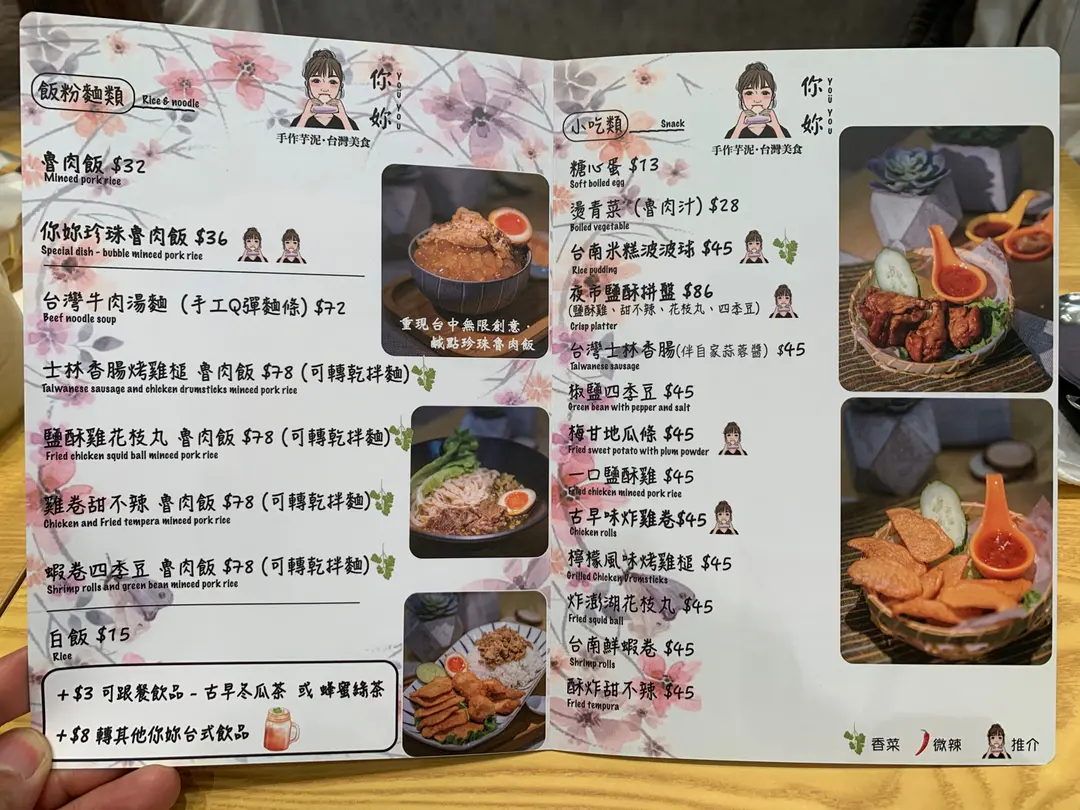 飯粉麵類 Rice & noodle
你妳
YOU YOU
手作芋泥·台灣美食
魯肉飯 $32
Minced pork rice
你妳珍珠魯肉飯 $36
Special dish - bubble minced pork rice
台灣牛肉湯麵 (手工Q彈麵條) $72
Beef noodle soup
重現台中無限創意、
鹹點珍珠魯肉飯
士林香腸烤雞槌 魯肉飯 $78 (可轉乾拌麵)
Taiwanese sausage and chicken drumsticks minced pork rice
鹽酥雞花枝丸 魯肉飯 $78 (可轉乾拌麵)
Fried chicken squid ball minced pork rice
雞卷甜不辣 魯肉飯 $78 (可轉乾拌麵)
Chicken and Fried tempera minced pork rice
蝦卷四季豆 魯肉飯 $78 (可轉乾拌麵)
Shrimp rolls and green bean minced pork rice
白飯 $15
Rice
+$3 可跟餐飲品 - 古早冬瓜茶 或 蜂蜜綠茶
+$8 轉其他你妳台式飲品
小吃類 Snack
你妳
YOU YOU
手作芋泥·台灣美食
糖心蛋 $13
Soft boiled egg
燙青菜 (魯肉汁) $28
Boiled vegetable
台南米糕波波球 $45
Rice pudding
夜市鹽酥拼盤 $86
(鹽酥雞、甜不辣、花枝丸、四季豆)
Crisp platter
台灣士林香腸(伴自家蒜蓉醬) $45
Taiwanese sausage
椒鹽四季豆 $45
Green bean with pepper and salt
梅甘地瓜條 $45
Fried sweet potato with plum powder
一口鹽酥雞 $45
Fried chicken minced pork rice
古早味炸雞卷$45
Chicken rolls
檸檬風味烤雞槌 $45
Grilled Chicken Drumsticks
炸澎湖花枝丸 $45
Fried squid ball
台南鮮蝦卷 $45
Shrimp rolls
酥炸甜不辣 $45
Fried tempura
香菜 微辣 推介